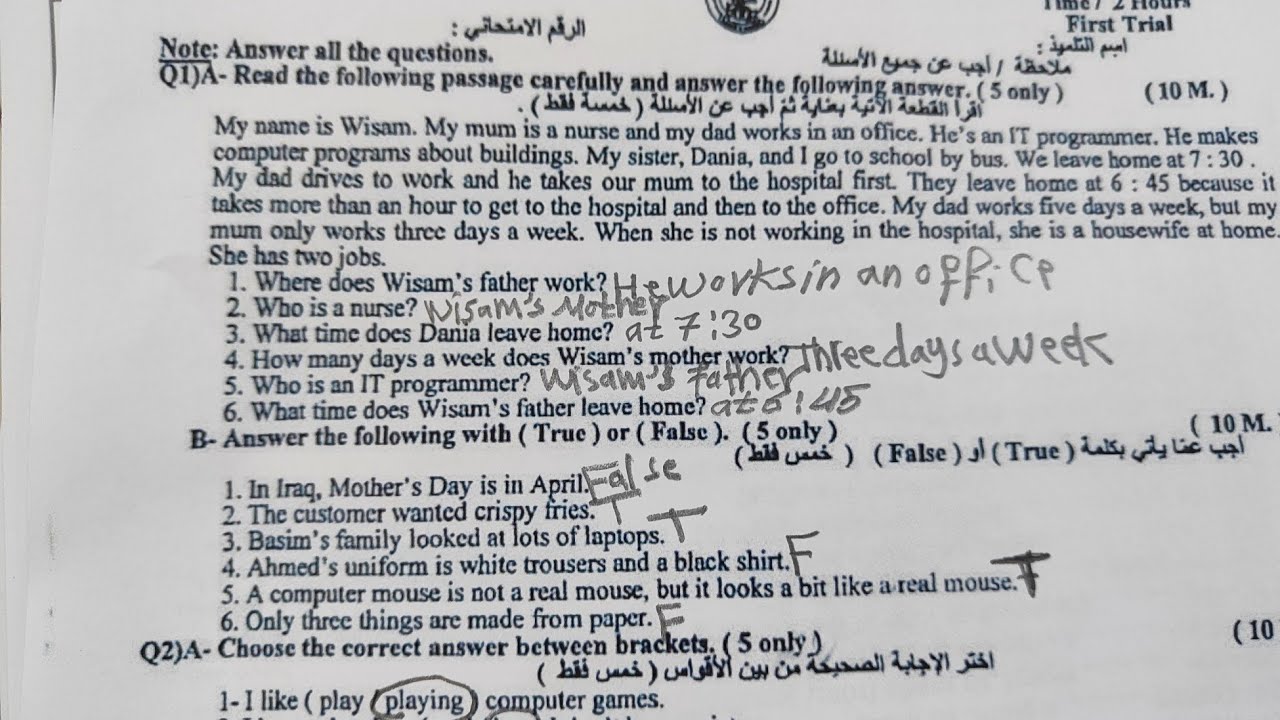 Time / 2 Hours
الرقم الامتحاني :
First Trial
Note: Answer all the questions.
اسم التلميذ :
ملاحظة / أجب عن جميع الأسئلة
Q1)A- Read the following passage carefully and answer the following answer. ( 5 only ) (10 M. )
اقرأ القطعة الآتية بعناية ثم أجب عن الأسئلة ( خمسة فقط ) .
My name is Wisam. My mum is a nurse and my dad works in an office. He's an IT programmer. He makes
computer programs about buildings. My sister, Dania, and I go to school by bus. We leave home at 7 : 30 .
My dad drives to work and he takes our mum to the hospital first. They leave home at 6 : 45 because it
takes more than an hour to get to the hospital and then to the office. My dad works five days a week, but my
mum only works three days a week. When she is not working in the hospital, she is a housewife at home.
She has two jobs.
1. Where does Wisam's father work? He works in an office
2. Who is a nurse? Wisam's Mother
3. What time does Dania leave home? at 7:30
4. How many days a week does Wisam's mother work? Three days a week
5. Who is an IT programmer? Wisam's Father
6. What time does Wisam's father leave home? at 6:45
B- Answer the following with ( True ) or ( False ). ( 5 only ) ( 10 M.
أجب عما يأتي بكلمة ( True ) أو ( False ) ( خمس فقط )
1. In Iraq, Mother's Day is in April. False
2. The customer wanted crispy fries. T
3. Basim's family looked at lots of laptops. T
4. Ahmed's uniform is white trousers and a black shirt. F
5. A computer mouse is not a real mouse, but it looks a bit like a real mouse. T
6. Only three things are made from paper. F
Q2)A- Choose the correct answer between brackets. ( 5 only ) (10
اختر الإجابة الصحيحة من بين الأقواس ( خمس فقط )
1- I like ( play playing ) computer games.